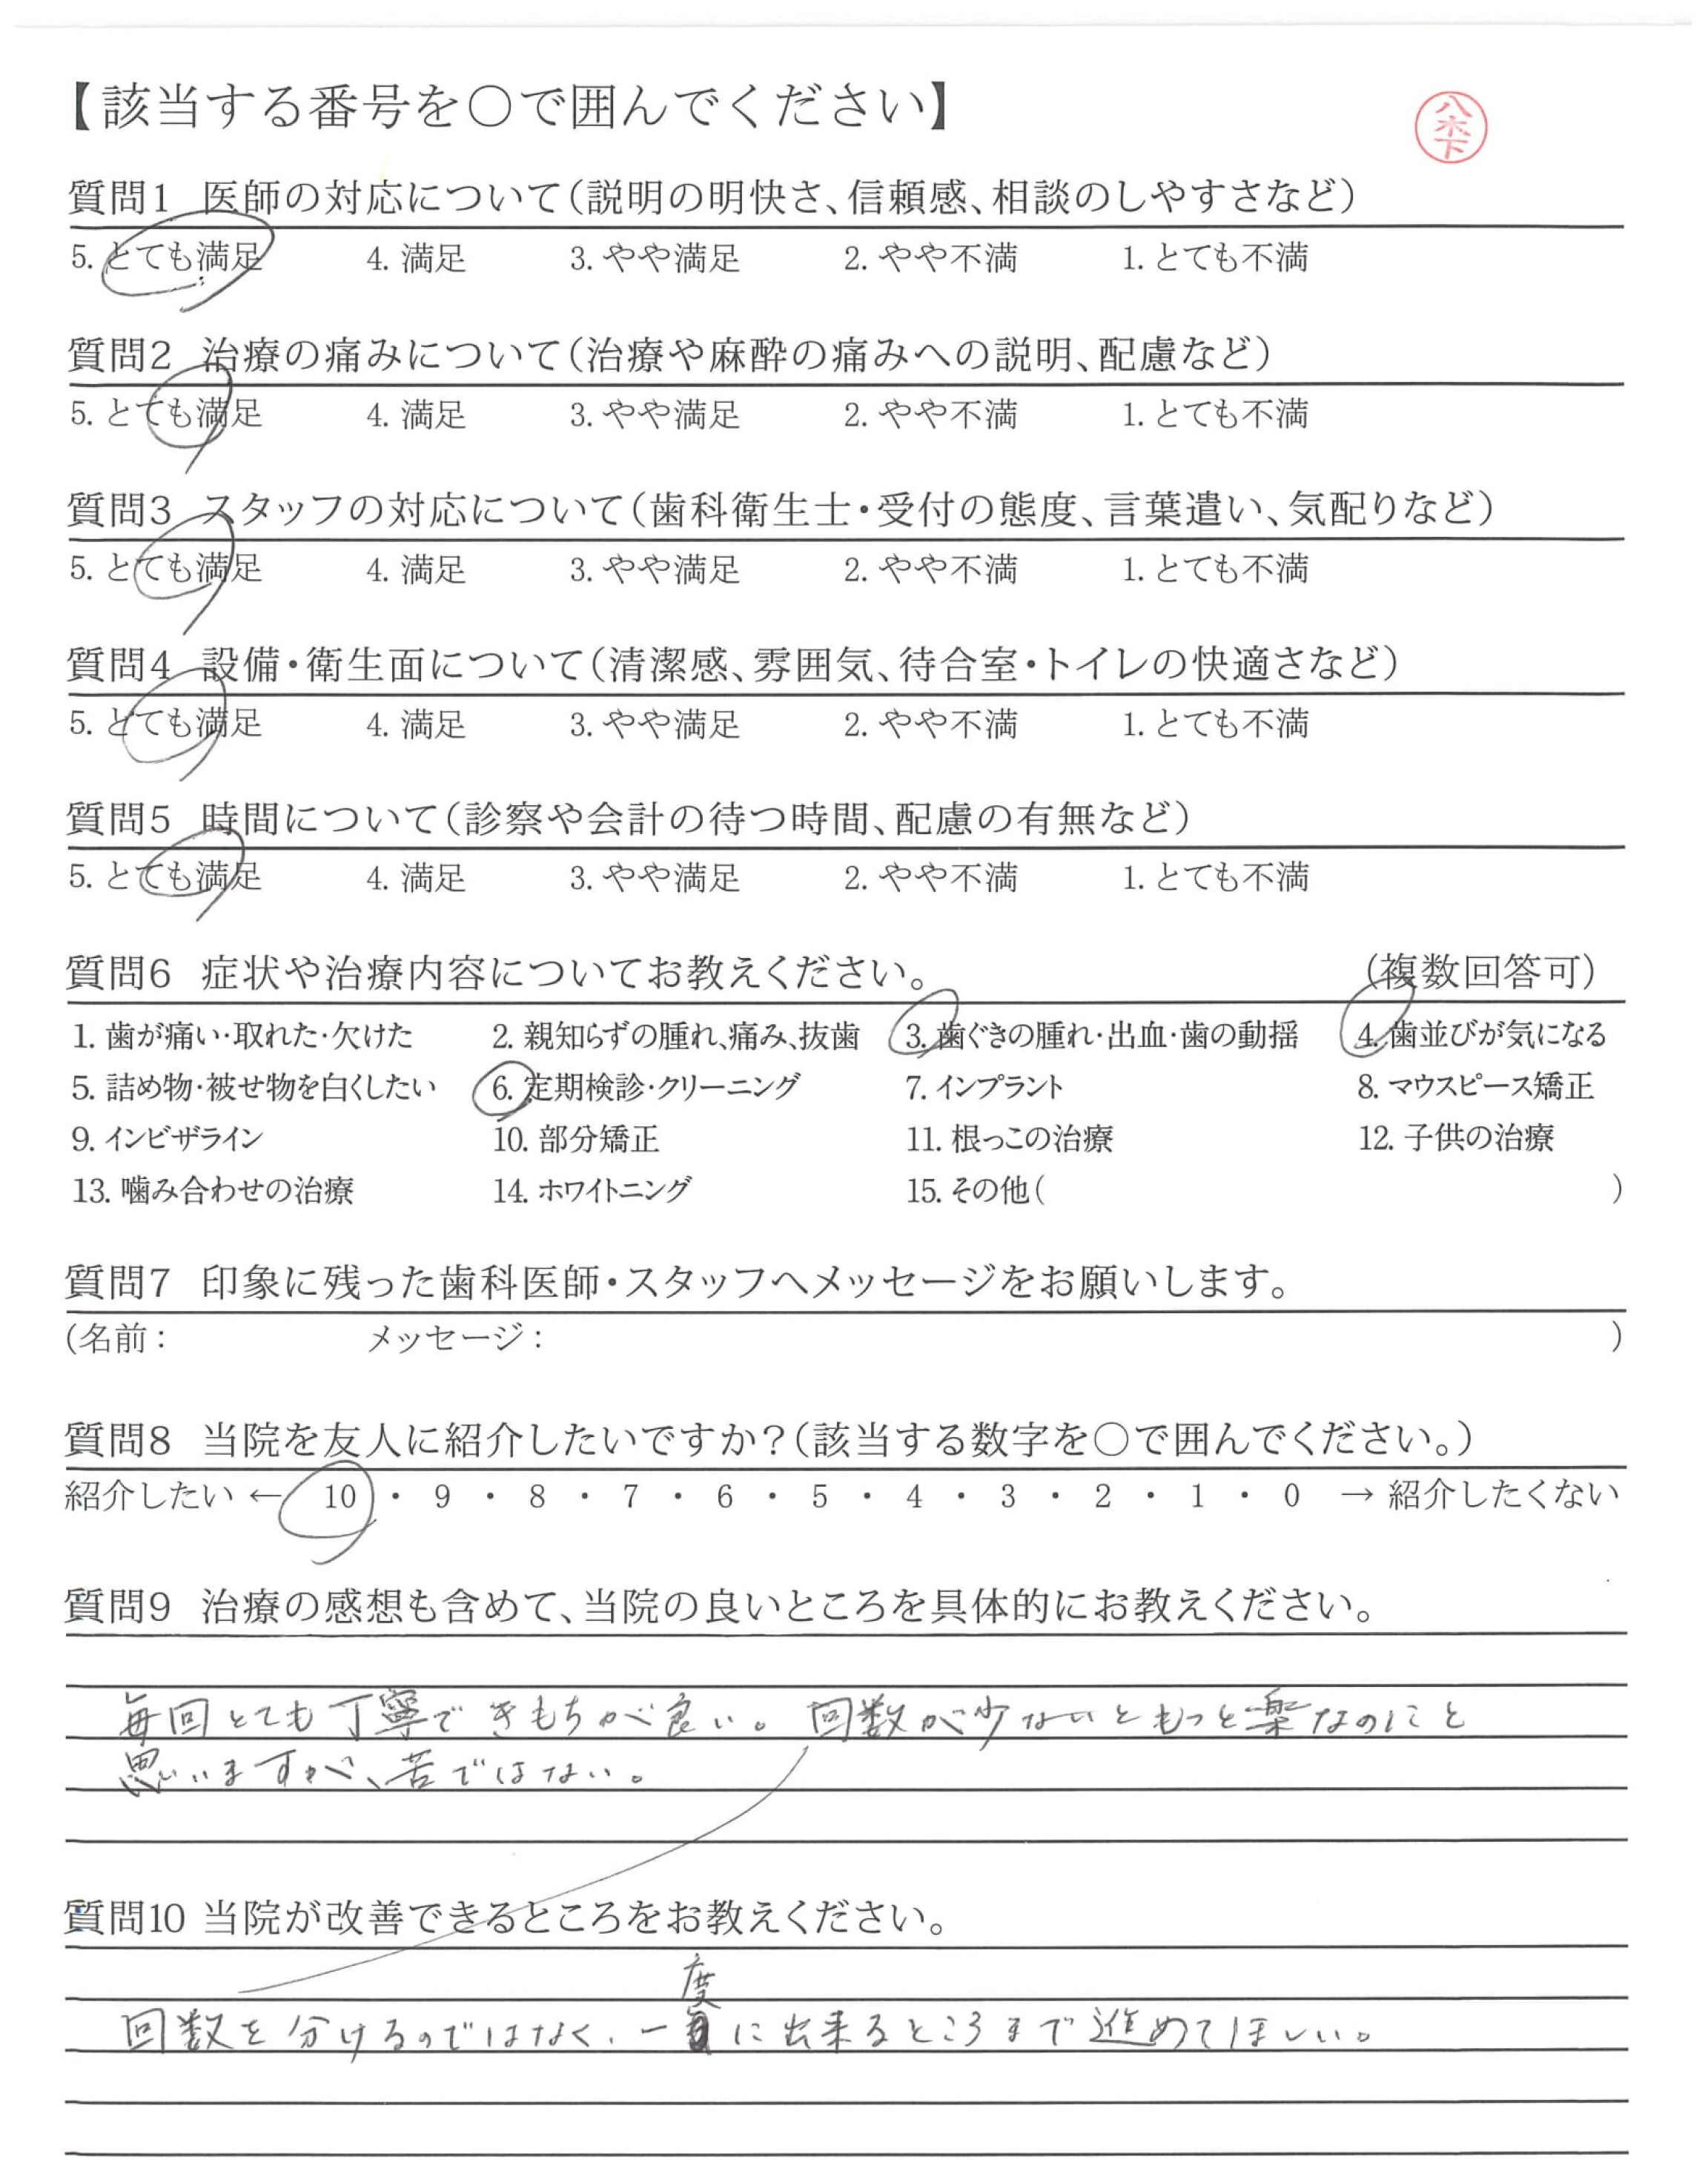 【該当する番号を○で囲んでください】
八木下
質問1 医師の対応について(説明の明快さ、信頼感、相談のしやすさなど)
5. とても満足 4. 満足 3. やや満足 2. やや不満 1. とても不満
質問2 治療の痛みについて(治療や麻酔の痛みへの説明、配慮など)
5. とても満足 4. 満足 3. やや満足 2. やや不満 1. とても不満
質問3 スタッフの対応について(歯科衛生士・受付の態度、言葉遣い、気配りなど)
5. とても満足 4. 満足 3. やや満足 2. やや不満 1. とても不満
質問4 設備・衛生面について(清潔感、雰囲気、待合室・トイレの快適さなど)
5. とても満足 4. 満足 3. やや満足 2. やや不満 1. とても不満
質問5 時間について(診察や会計の待つ時間、配慮の有無など)
5. とても満足 4. 満足 3. やや満足 2. やや不満 1. とても不満
質問6 症状や治療内容についてお教えください。 (複数回答可)
1. 歯が痛い・取れた・欠けた 2. 親知らずの腫れ、痛み、抜歯 3. 歯ぐきの腫れ・出血・歯の動揺 4. 歯並びが気になる
5. 詰め物・被せ物を白くしたい 6. 定期検診・クリーニング 7. インプラント 8. マウスピース矯正
9. インビザライン 10. 部分矯正 11. 根っこの治療 12. 子供の治療
13. 噛み合わせの治療 14. ホワイトニング 15. その他( )
質問7 印象に残った歯科医師・スタッフへメッセージをお願いします。
(名前: メッセージ: )
質問8 当院を友人に紹介したいですか?(該当する数字を○で囲んでください。)
紹介したい ← 10 ・ 9 ・ 8 ・ 7 ・ 6 ・ 5 ・ 4 ・ 3 ・ 2 ・ 1 ・ 0 → 紹介したくない
質問9 治療の感想も含めて、当院の良いところを具体的にお教えください。
毎回とても丁寧できもちが良い。回数が少ないともっと楽なのにと
思いますが、苦ではない。
質問10 当院が改善できるところをお教えください。
回数を分けるのではなく、一度に出来るところまで進めてほしい。